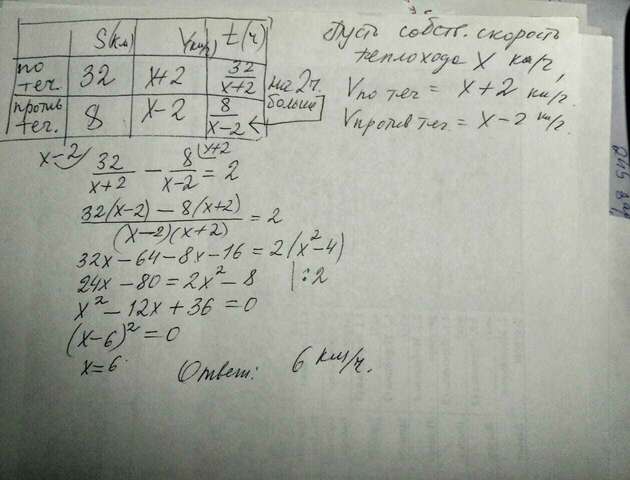 S(км) V(км/ч) t(ч)
по теч. 32 x+2 32/(x+2)
против теч. 8 x-2 8/(x-2)
на 2ч. больше
Пусть собств. скорость
теплохода x км/ч,
Vпо теч = x+2 км/ч.
Vпротив теч = x-2 км/ч.
x-2) 32/(x+2) - 8/(x-2) (x+2 = 2
(32(x-2) - 8(x+2))/((x-2)(x+2)) = 2
32x-64-8x-16 = 2(x²-4)
24x-80 = 2x²-8 |:2
x²-12x+36=0
(x-6)²=0
x=6.
Ответ: 6 км/ч.